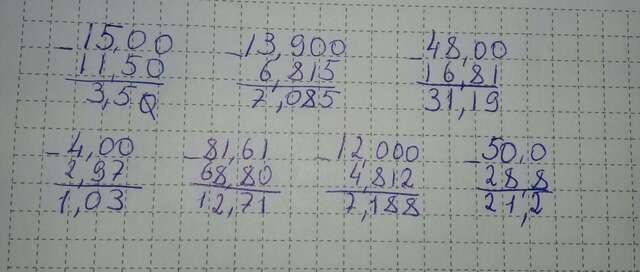 -15,00 -13,900 -48,00
11,50 6,815 16,81
3,50 7,085 31,19
-4,00 -81,61 -12,000 -50,0
2,97 68,80 4,812 28 8
1,03 12,71 7,188 21,2